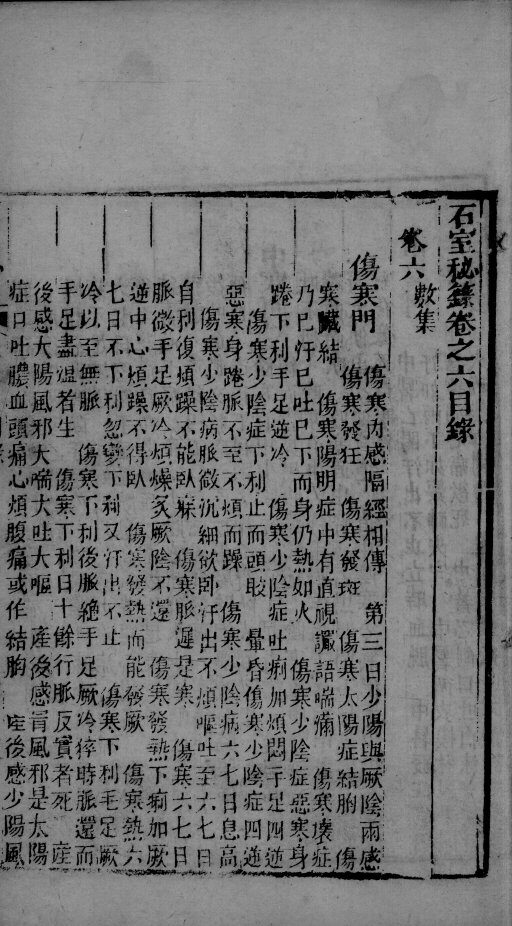 石室秘籙卷之六目錄
卷六 數集
傷寒門 傷寒內感隔經相傳 第三日少陽與厥陰兩感
傷寒發狂 傷寒發斑 傷寒太陽症結胸 傷
寒臟結 傷寒陽明症中有直視讝語喘滿 傷寒壞症
乃巳汗巳吐巳下而身仍熱如火 傷寒少陰症惡寒身
踡下利手足逆冷 傷寒少陰症吐痢加煩悶手足四逆
傷寒少陰症下利止而頭眩 暈昏傷寒少陰症四逆
惡寒身踡脈不至不煩而躁 傷寒少陰病六七日息高
傷寒少陰病脈微沉細欲卧汗出不煩嘔吐至六七日
自利復煩躁不能卧寐 傷寒脈遲是寒 傷寒六七日
脈微手足厥冷煩燥炙厥陰不還 傷寒發熱下痢加厥
逆中心煩躁不得卧 傷寒發熱而能發厥 傷寒熱六
七日不下利忽變下利又汗出不止 傷寒下利手足厥
冷以至無脈 傷寒下利後脈絶手足厥冷猝時脈還而
手足盡溫者生 傷寒下利日十餘行脈反實者死 產
後感大陽風邪大喘大吐大嘔 產後感冒風邪是太陽
症口吐膿血頭痛心煩腹痛或作結胸 產後感少陽風